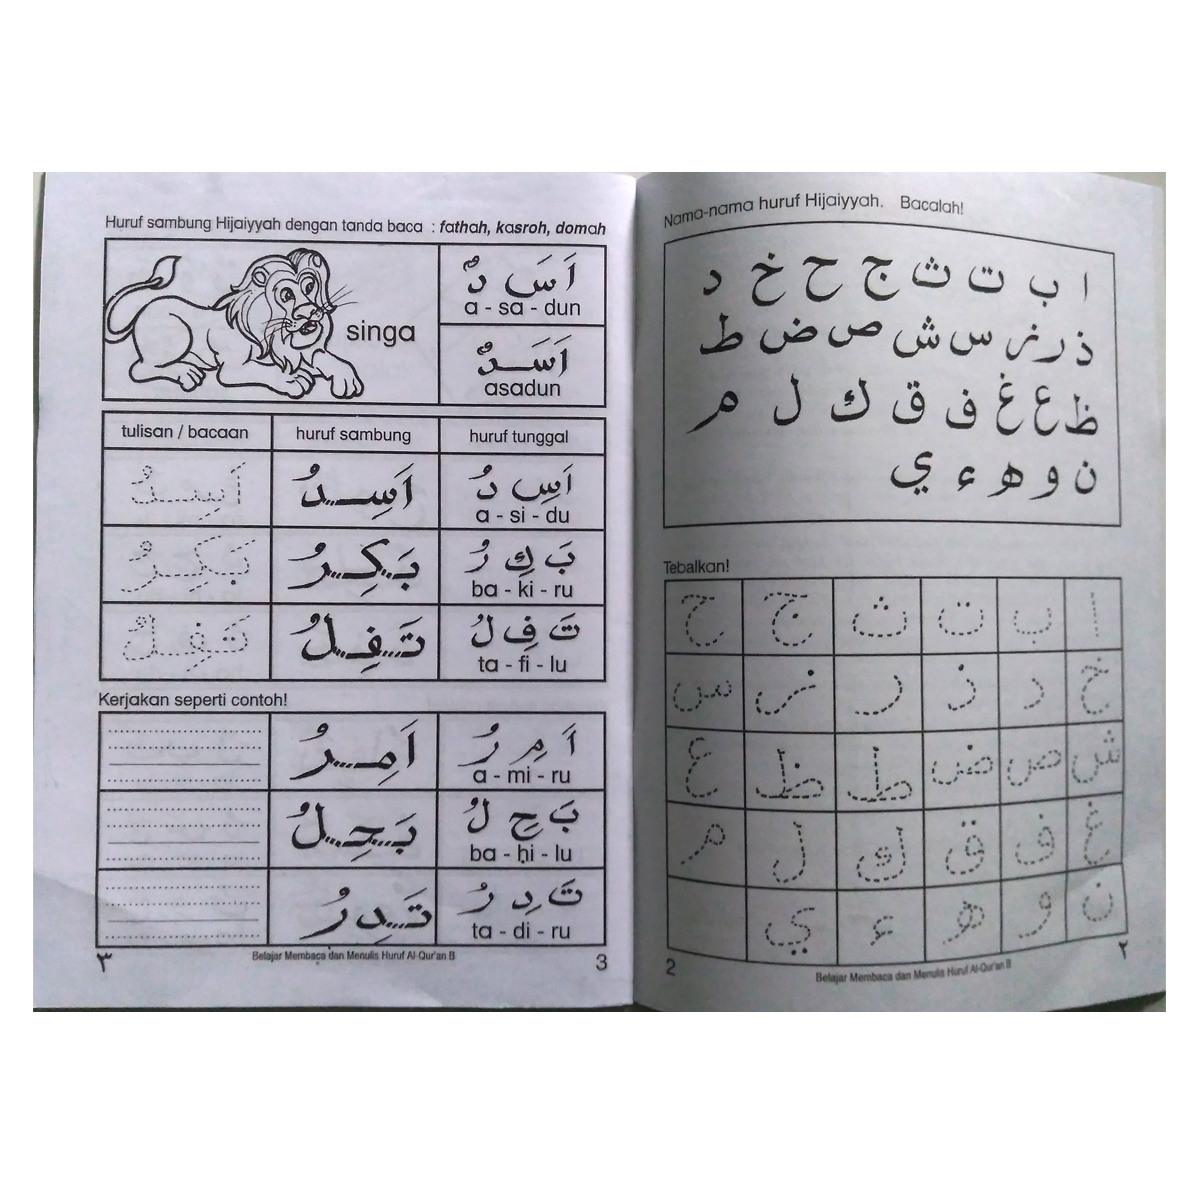 Huruf sambung Hijaiyyah dengan tanda baca : fathah, kasroh, domah
singa
اَ سَ دٌ
a - sa - dun
اَسَـــدٌ
asadun
tulisan / bacaan
huruf sambung
huruf tunggal
اَسِـــدُ
اَسِـــدُ
اَ سِ دُ
a - si - du
بَـكِـرُ
بَـكِـرُ
بَ كِ رُ
ba - ki - ru
تَـفِـلُ
تَـفِـلُ
تَ فِ لُ
ta - fi - lu
Kerjakan seperti contoh!
اَمِـــرُ
اَ مِ رُ
a - mi - ru
بَـحِـلُ
بَ حِ لُ
ba - ḥi - lu
تَـدِرُ
تَ دِ رُ
ta - di - ru
٣
Belajar Membaca dan Menulis Huruf Al-Qur'an B
3
Nama-nama huruf Hijaiyyah. Bacalah!
ا ب ت ث ج ح خ د
ذ ر ز س ش ص ض ط
ظ ع غ ف ق ك ل م
ن و ه ء ي
Tebalkan!
ا ب ت ث ج ح
خ د ذ ر ز س
ش ص ض ط ظ ع
غ ف ق ك ل م
ن و ه ء ي
2
Belajar Membaca dan Menulis Huruf Al-Qur'an B
٢